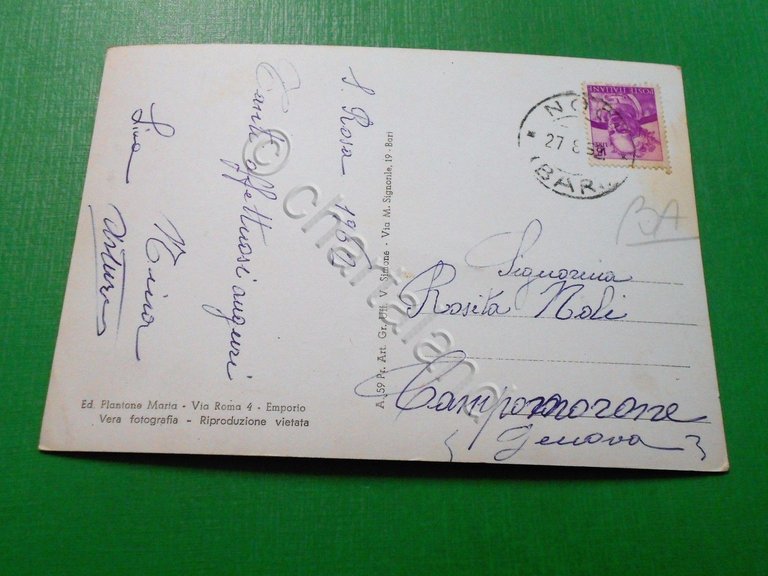 S. Rosa 1960
Tanti affettuosi auguri
Lina Nina
Arturo
Ed. Plantone Maria - Via Roma 4 - Emporio
Vera fotografia - Riproduzione vietata
A. 59 Pr. Art. Gr. Uff. V. Simone - Via M. Signorile, 19 - Bari
POSTE ITALIANE
27 8
(BAR
BA
Signorina
Rosita Noli
Campomorone
(Genova)
© chartaland